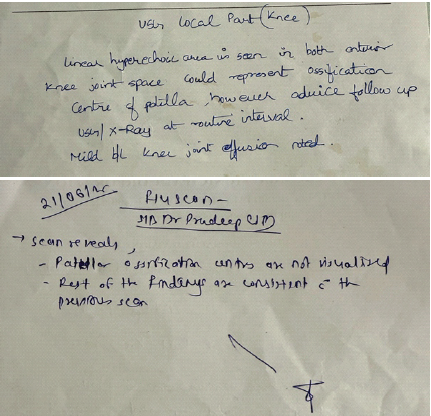 USG Local Part (Knee)
Linear hyperechoic area is seen in both anterior
Knee joint space could represent ossification
Centre of patella, however advice follow up
USG/X-Ray at routine interval.
Mild b/L knee joint effusion noted.
21/06/
F/U scan -
Dr Pradeep
→ Scan reveals,
- Patellar ossification centres are not visualised
- Rest of the findings are consistent c̄ the
previous scan